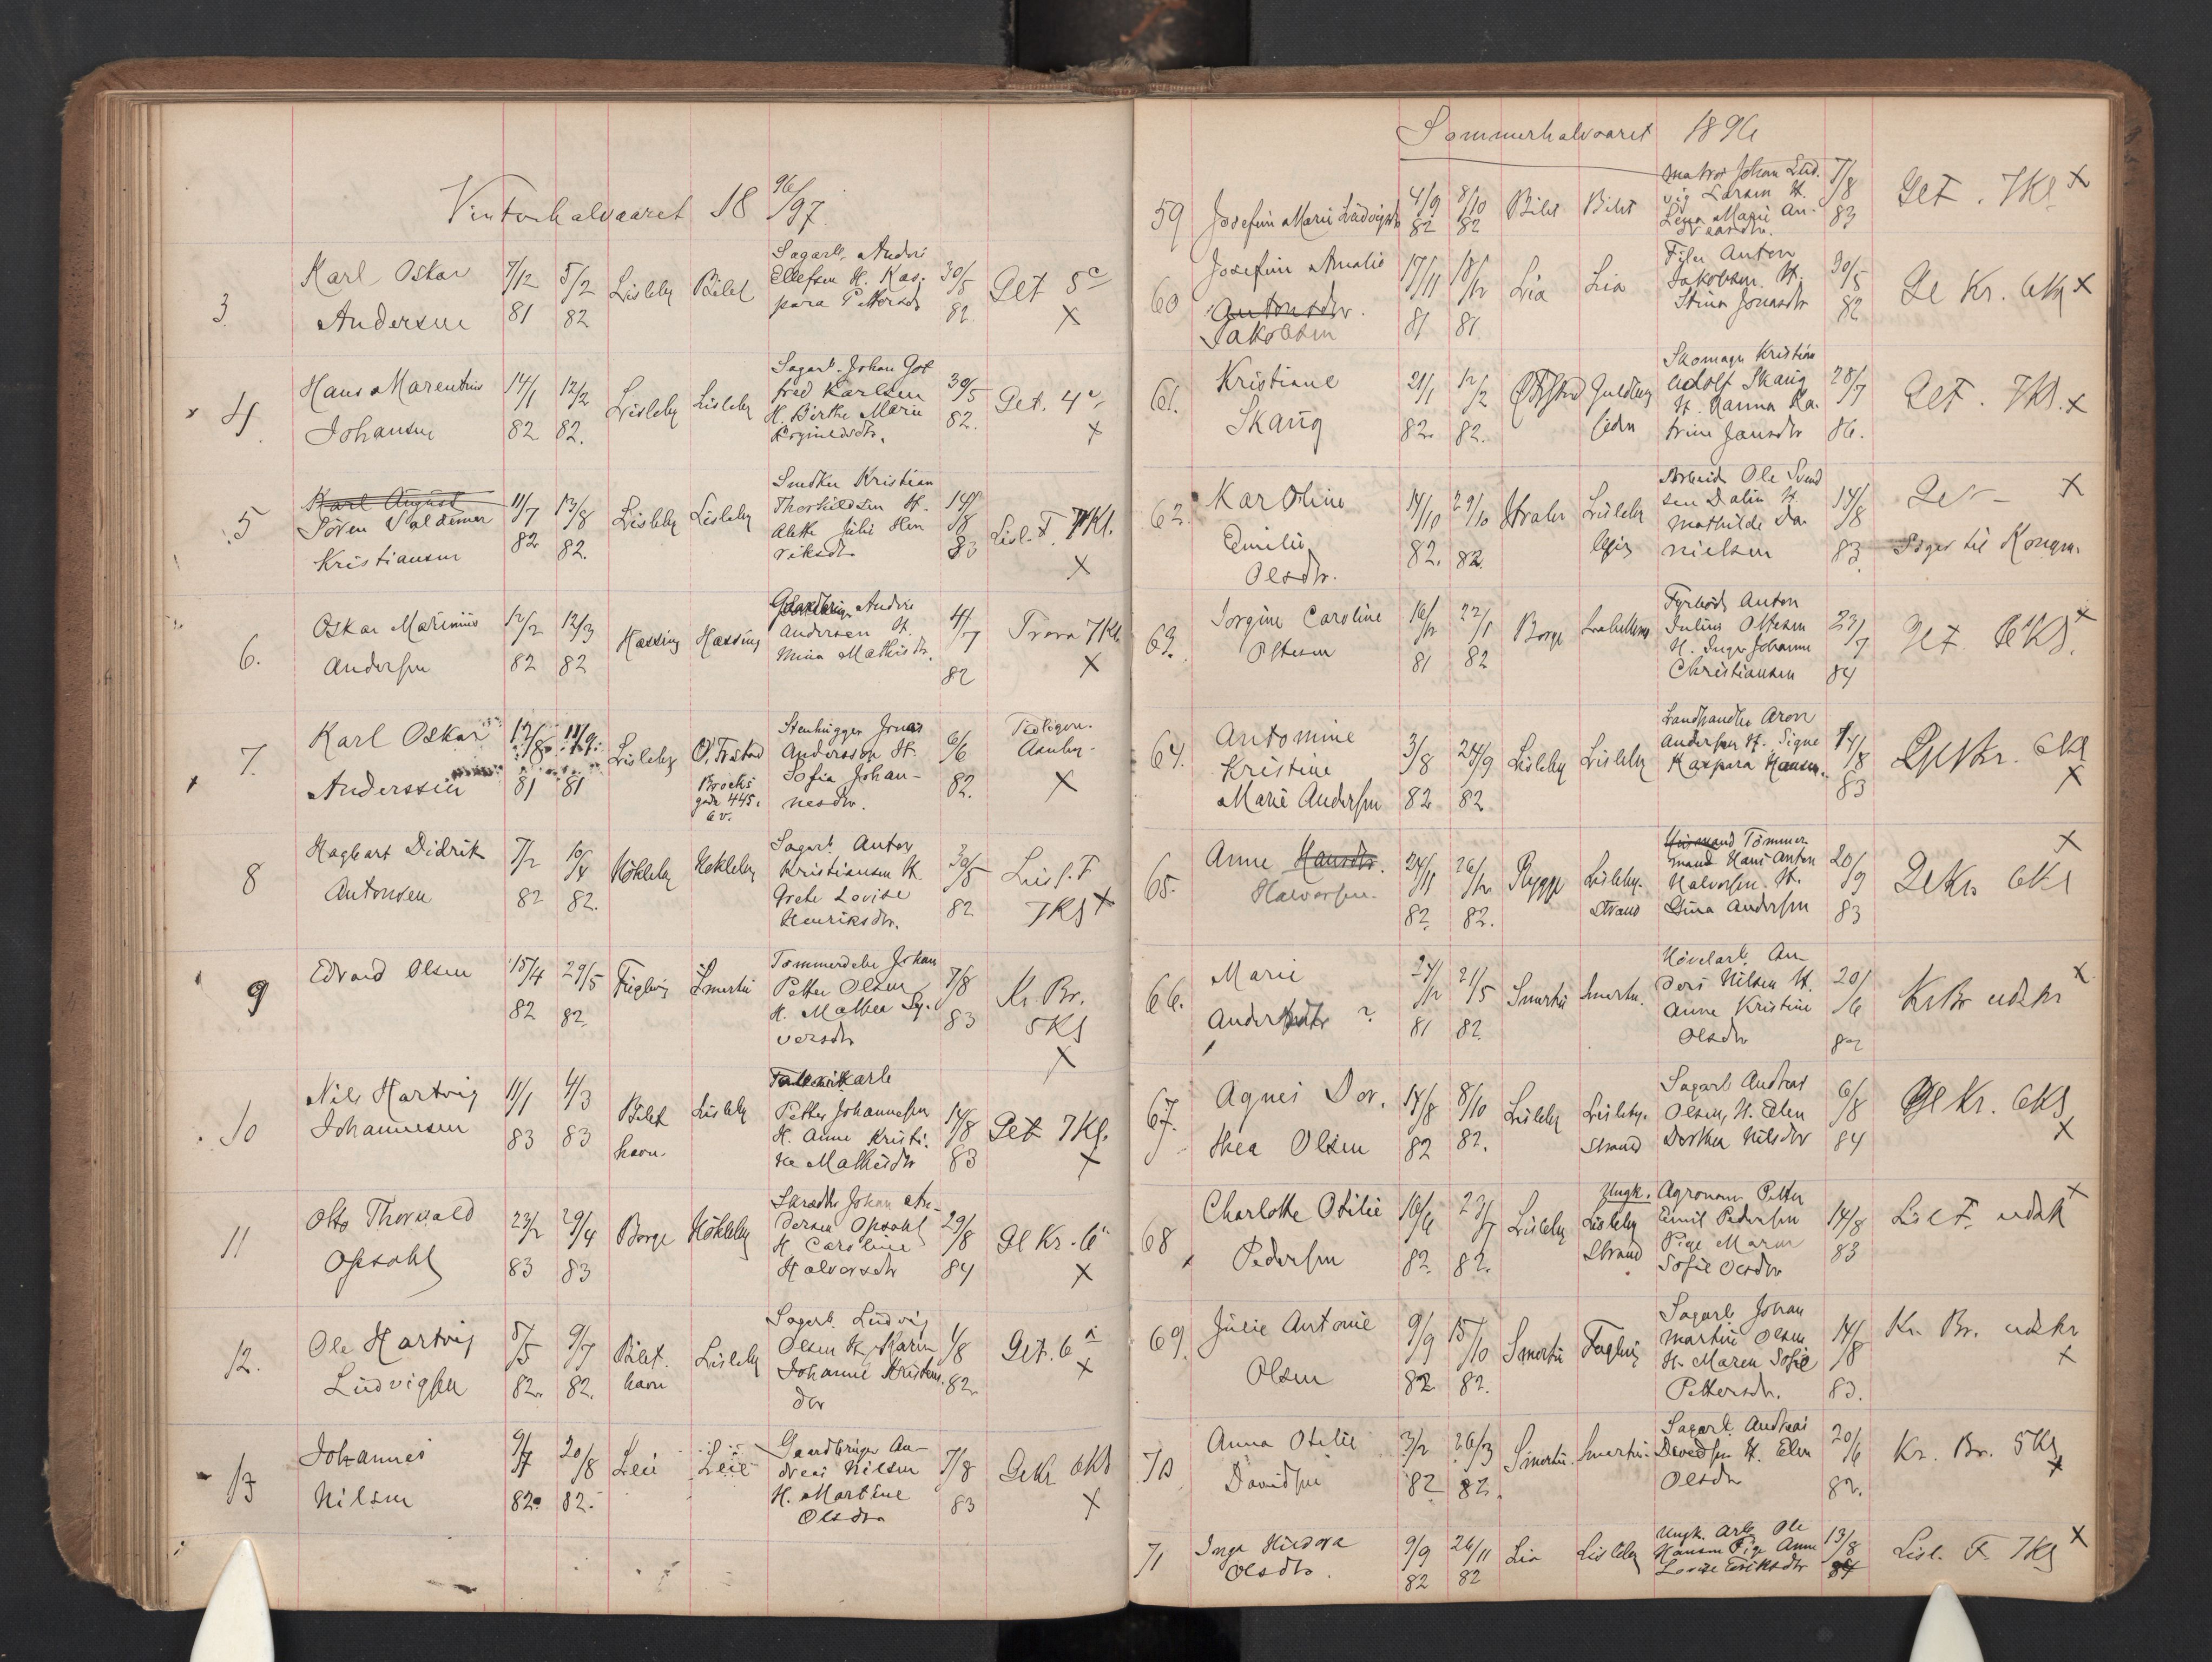 Vinterhalvaaret 18 96/97
3.
Karl Oskar
Andersen
7/12 81
5/2 82
Lisleby
Bilet
Sagarb. Andrs
Ellefsen H. Kas-
para Pettersdr
30/5 82.
Get 5c
X
4.
Hans Marentius
Johansen
14/1 82
12/2 82.
Lisleby
Lisleby
Sagarb. Johan Got
fred Karlsen
H. Birthe Marie
30/5 82.
Get. 4c
X
5
Karl August
Søren Valdemar
Kristiansen
11/7 82
13/8 82.
Lisleby
Lisleby
Snedker Kristian
Thorkildsen H.
Alette Julie Hen
riksdr
14/8 83
Lisl. F. 7Kl.
X
6.
Oskar Marinius
Andersen
12/2 82
12/3 82
Hassing
Hassing
Andrs
Andersen H.
Mina Mathisdr.
4/7 82
Trara 7Kl
X
7.
Karl Oskar
Anderssen
12/8 81
11/9 81
Lisleby
Ø. Frstad
Brocks
gade 445.
Stenhugger Jonas
Andersson H.
Sofia Johan-
nesdr.
6/6 82.
Tidligere
X
8
Hagbart Didrik
Antonsen
7/2 82
10/4 82.
Høkleby
Høkleby
Sagarb. Anton
Kristiansen H.
Grete Lovise
Henriksdr.
30/5 82
Lisl. F
7Kl X
9
Edvard Olsen
15/4 82
29/5 82.
Fuglvig
Smertu
Tømmerdeler Johan
Petter Olsen
H. Mathea Sy-
versdr
7/8 83
Kr. Br.
5Kl
X
10
Nils Hartvig
Johannesen
11/1 83
4/3 83
Bilet
havn
Lisleby
Petter Johannesen
H. Anne Kristi-
ne Mathisdr
14/8 83
Get 7Kl.
X
11
Otto Thorvald
Opsahl
23/2 83
29/4 83
Borge
Høkleby
Skrædder Johan An-
dersen Opsahl
H. Caroline
Halvorsdr
29/8 84
Gl Kr. 6
X
12.
Ole Hartvig
Ludvigsen
5/5 82.
9/7 82.
Bilet.
havn
Lisleby
Sagarb. Ludvig
Olsen H. Karen
Johanne Kristens
dtr
1/8 82.
Get. 6a
X
13
Johannes
Nilsen
9/7 82.
20/8 82.
Leie
Leie
Gaardbruger An-
dreas Nilsen
H. Martine
Olsdtr
7/8 83
Gl Kr 6Kl
X
Sommerhalvaaret 1896
59
Josefine Marie Ludvigsdr
4/9 82
8/10 82
Bilet
Bilet
Matros Johan Lud.
vig Larsen H.
Lena Marie An-
dreasdr.
7/8 83
Get. 7Kl X
60
Josefine Amalie
Antonsdr.
Jakobsen
17/11 81
18/12 81
Lia
Lia
Filer Anton
Jakobsen. H.
Stina Jonasdtr
30/5 82
Gl Kr. 6Kl X
61.
Kristiane
Skaug
21/1 82.
12/2 82.
Guldberg
Skomager Kristian
Adolf Skaug
H. Hanna Ka-
trine Jansdtr
28/7 86.
Get. 7Kl. X
62.
Karoline
Emilie
Olsdtr.
14/10 82.
29/10 82.
Hvaler
Lisleby
Arbeid Ole Svend
sen Dalin H.
Mathilde Da-
nielsen
14/8 83.
X
63.
Jorgine Caroline
Ottesen
16/12 81
22/1 82
Borge
Fyrbøder Anton
Julius Ottesen
H. Inger Johanne
Christiansen
23/7 84
Get 6Kl. X
64.
Antomine
Kristine
Marie Andersen
3/8 82
24/9 82
Lisleby
Lisleby
Landhandler Aron
Andersen H. Signe
Kaspara Hansen.
14/8 83
Gl Kr. 6Kl
X
65.
Anne Hansdtr.
Halvorsen.
24/11 82.
26/12 82.
Rygge
Lisleby.
Strand
Tømmer
mand Hans Anton
Halvorsen. H.
Gina Andersen
20/9 83
Gl Kr 6Kl
X
66.
Marie
Andersdtr ?
27/12 81
21/5 82
Smertu
Smertu.
Høvelarb. An-
ders Nilsen H.
Anne Kristine
Olsdtr
20/6 82
Kr Br udskr
X
67.
Agnes Dor.
thea Olsen
14/8 82
8/10 82.
Lisleby
Lisleby.
Strand
Sagarb Andreas
Olsen, H. Elen
Dorthea Nilsdtr
6/8 84
Gl Kr. 6Kl
X
68
Charlotte Otilie
Pedersen
16/6 82.
23/7 82.
Lisleby
Lisleby
Strand
Ungk. Agronom Petter
Emil Pedersen
Pige Maren
Sofie Olsdtr
14/8 83
Lisl F. udskr X
69.
Julie Antonie
Olsen
9/9 82
15/10 82.
Smertu
Fuglvig
Sagarb Johan
Martin Olsen
H. Maren Sofie
Pettersdr.
14/8 83.
Kr. Br. udskr
X
70
Anna Otilie
Davidsen
3/2 82
26/3 82.
Smertu.
Smertu.
Sagarb. Andreas
Davidsen H. Elen
Olsdtr
20/6 82.
Kr. Br. 5Kl
X
71
Inga Hildora
Olsdtr.
9/9 82
26/11 82
Lia
Lisleby
Ungk. Arb. Ole
Hansen Pige Anne
Lovise Eriksdtr
13/8 84
Lisl. F. 7Kl X